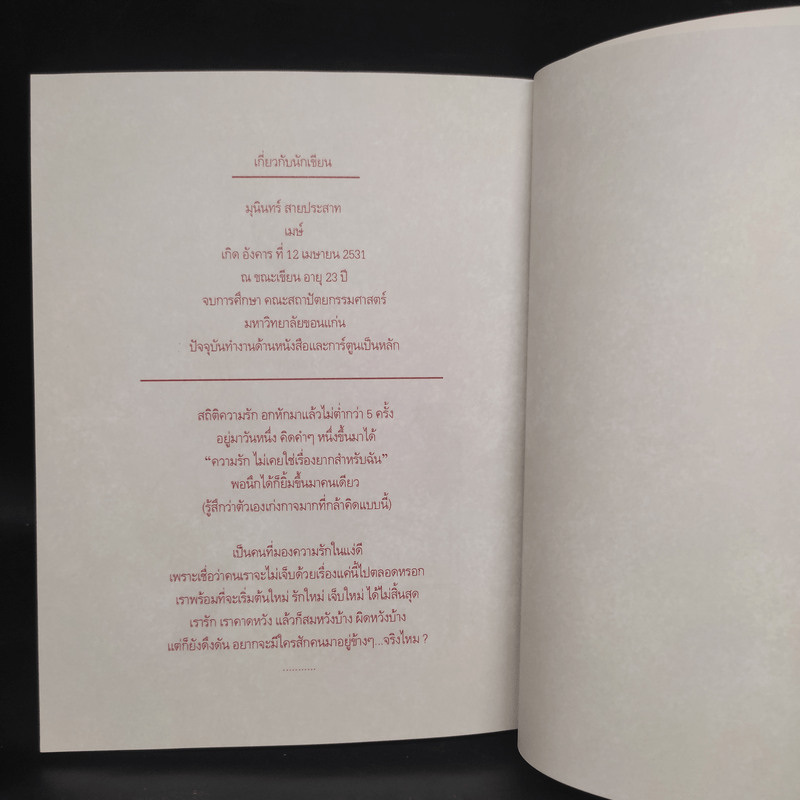 เกี่ยวกับนักเขียน
มุนินทร์ สายประสาท
เมษ์
เกิด อังคาร ที่ 12 เมษายน 2531
ณ ขณะเขียน อายุ 23 ปี
จบการศึกษา คณะสถาปัตยกรรมศาสตร์
มหาวิทยาลัยขอนแก่น
ปัจจุบันทำงานด้านหนังสือและการ์ตูนเป็นหลัก
สถิติความรัก อกหักมาแล้วไม่ต่ำกว่า 5 ครั้ง
อยู่มาวันหนึ่ง คิดคำๆ หนึ่งขึ้นมาได้
“ความรัก ไม่เคยใช่เรื่องยากสำหรับฉัน”
พอนึกได้ก็ยิ้มขึ้นมาคนเดียว
(รู้สึกว่าตัวเองเก่งกาจมากที่กล้าคิดแบบนี้)
เป็นคนที่มองความรักในแง่ดี
เพราะเชื่อว่าคนเราจะไม่เจ็บด้วยเรื่องแค่นี้ไปตลอดหรอก
เราพร้อมที่จะเริ่มต้นใหม่ รักใหม่ เจ็บใหม่ ได้ไม่สิ้นสุด
เรารัก เราคาดหวัง แล้วก็สมหวังบ้าง ผิดหวังบ้าง
แต่ก็ยังดึงดัน อยากจะมีใครสักคนมาอยู่ข้างๆ...จริงไหม ?
...........